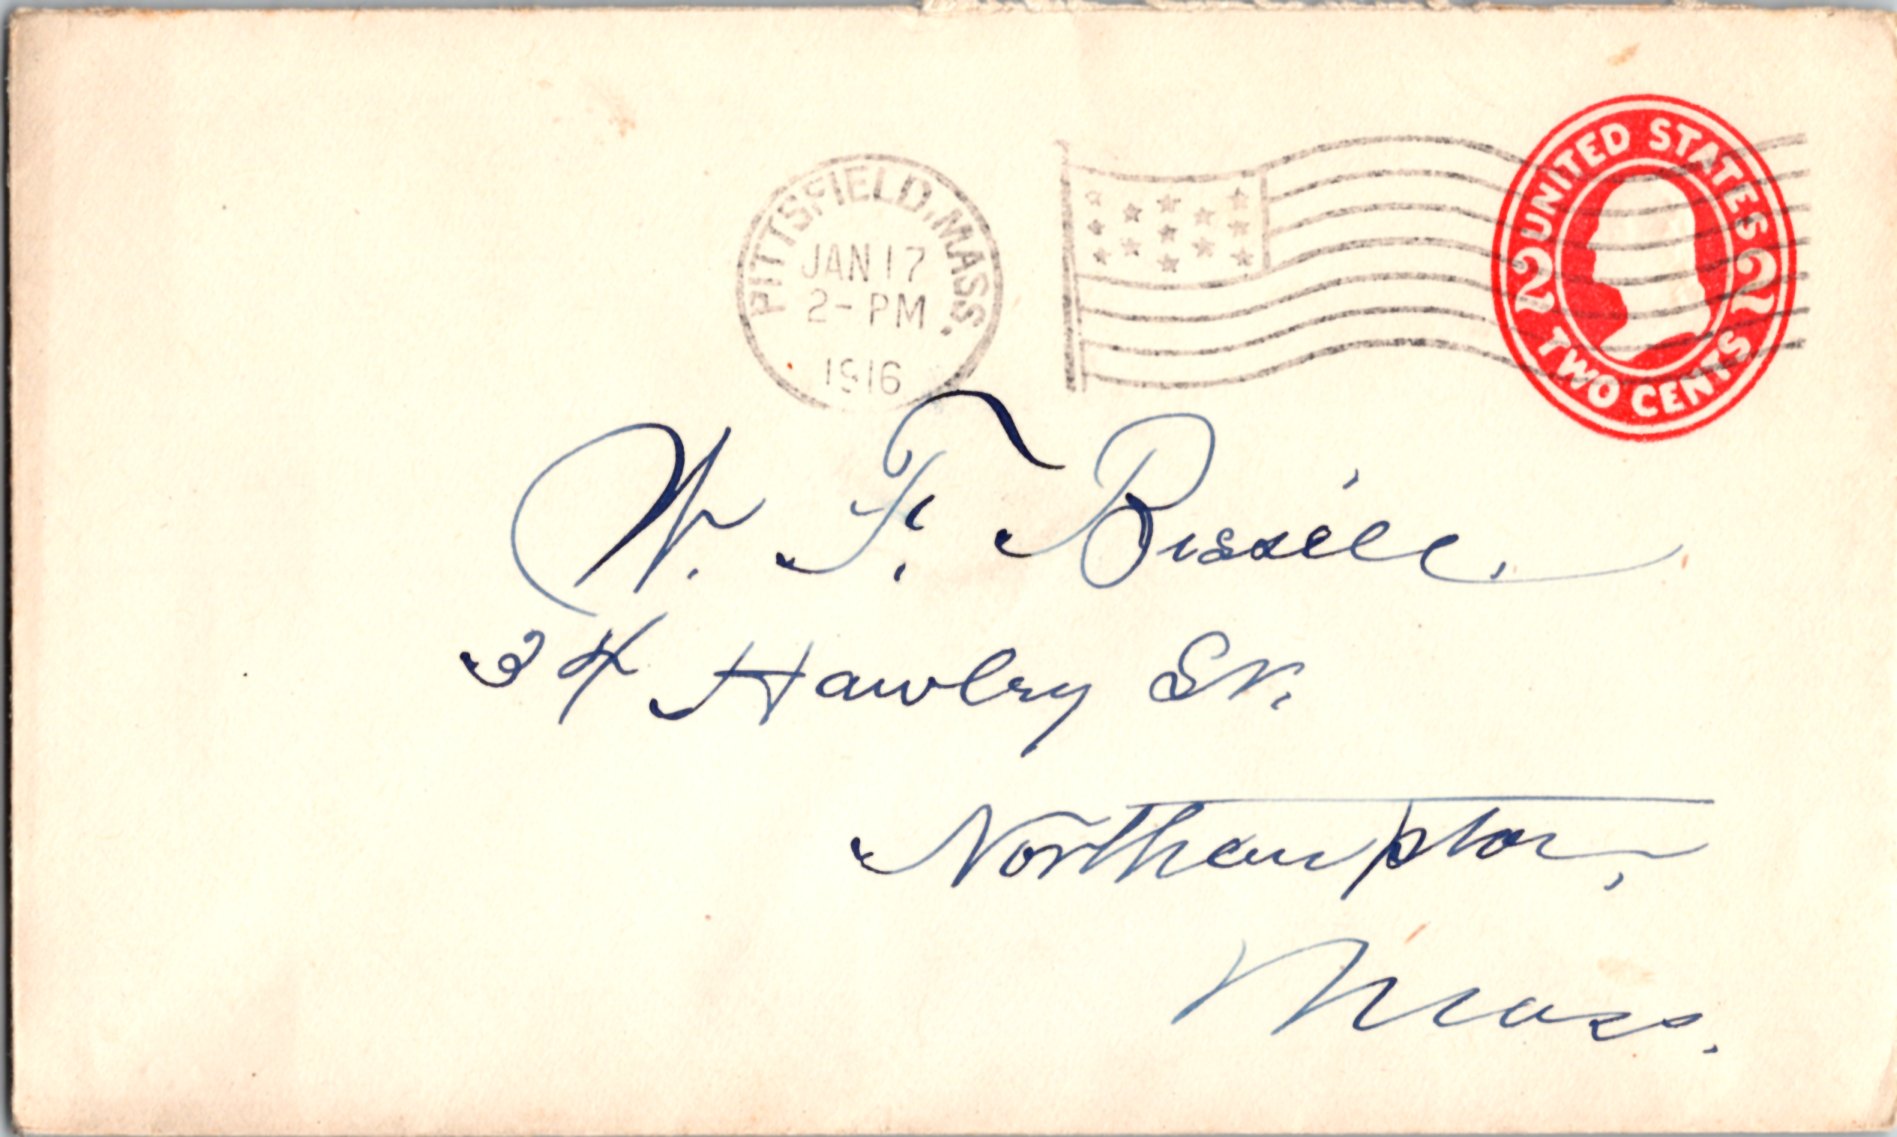 PITTSFIELD, MASS.
JAN 17
2- PM
1916
UNITED STATES
2 2
TWO CENTS
W. F. Bissell.
34 Hawley St.
Northampton,
Mass.